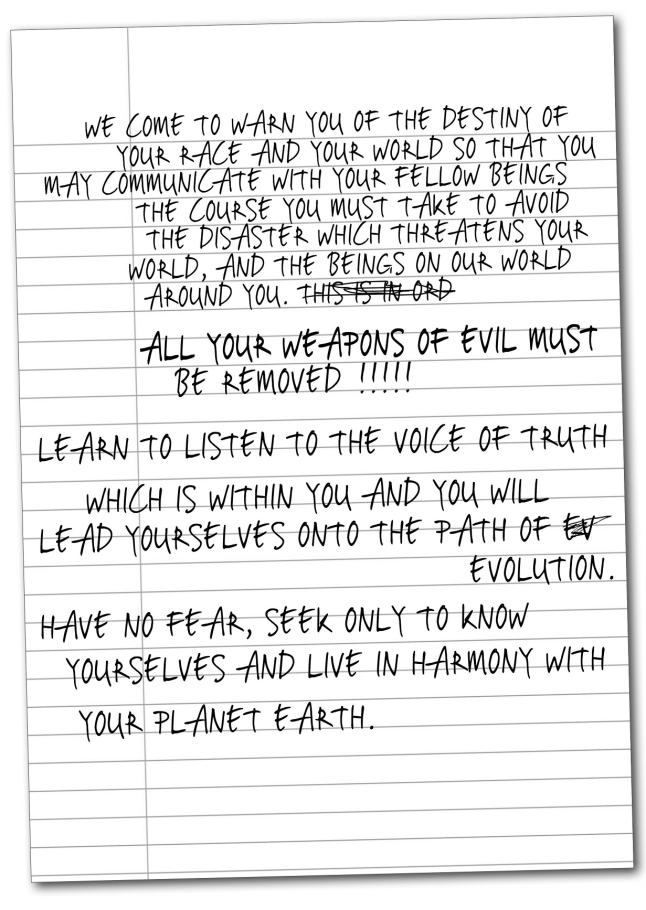 WE COME TO WARN YOU OF THE DESTINY OF
YOUR RACE AND YOUR WORLD SO THAT YOU
MAY COMMUNICATE WITH YOUR FELLOW BEINGS
THE COURSE YOU MUST TAKE TO AVOID
THE DISASTER WHICH THREATENS YOUR
WORLD, AND THE BEINGS ON OUR WORLD
AROUND YOU. THIS IS IN ORD
ALL YOUR WEAPONS OF EVIL MUST
BE REMOVED !!!!!
LEARN TO LISTEN TO THE VOICE OF TRUTH
WHICH IS WITHIN YOU AND YOU WILL
LEAD YOURSELVES ONTO THE PATH OF EV
EVOLUTION.
HAVE NO FEAR, SEEK ONLY TO KNOW
YOURSELVES AND LIVE IN HARMONY WITH
YOUR PLANET EARTH.